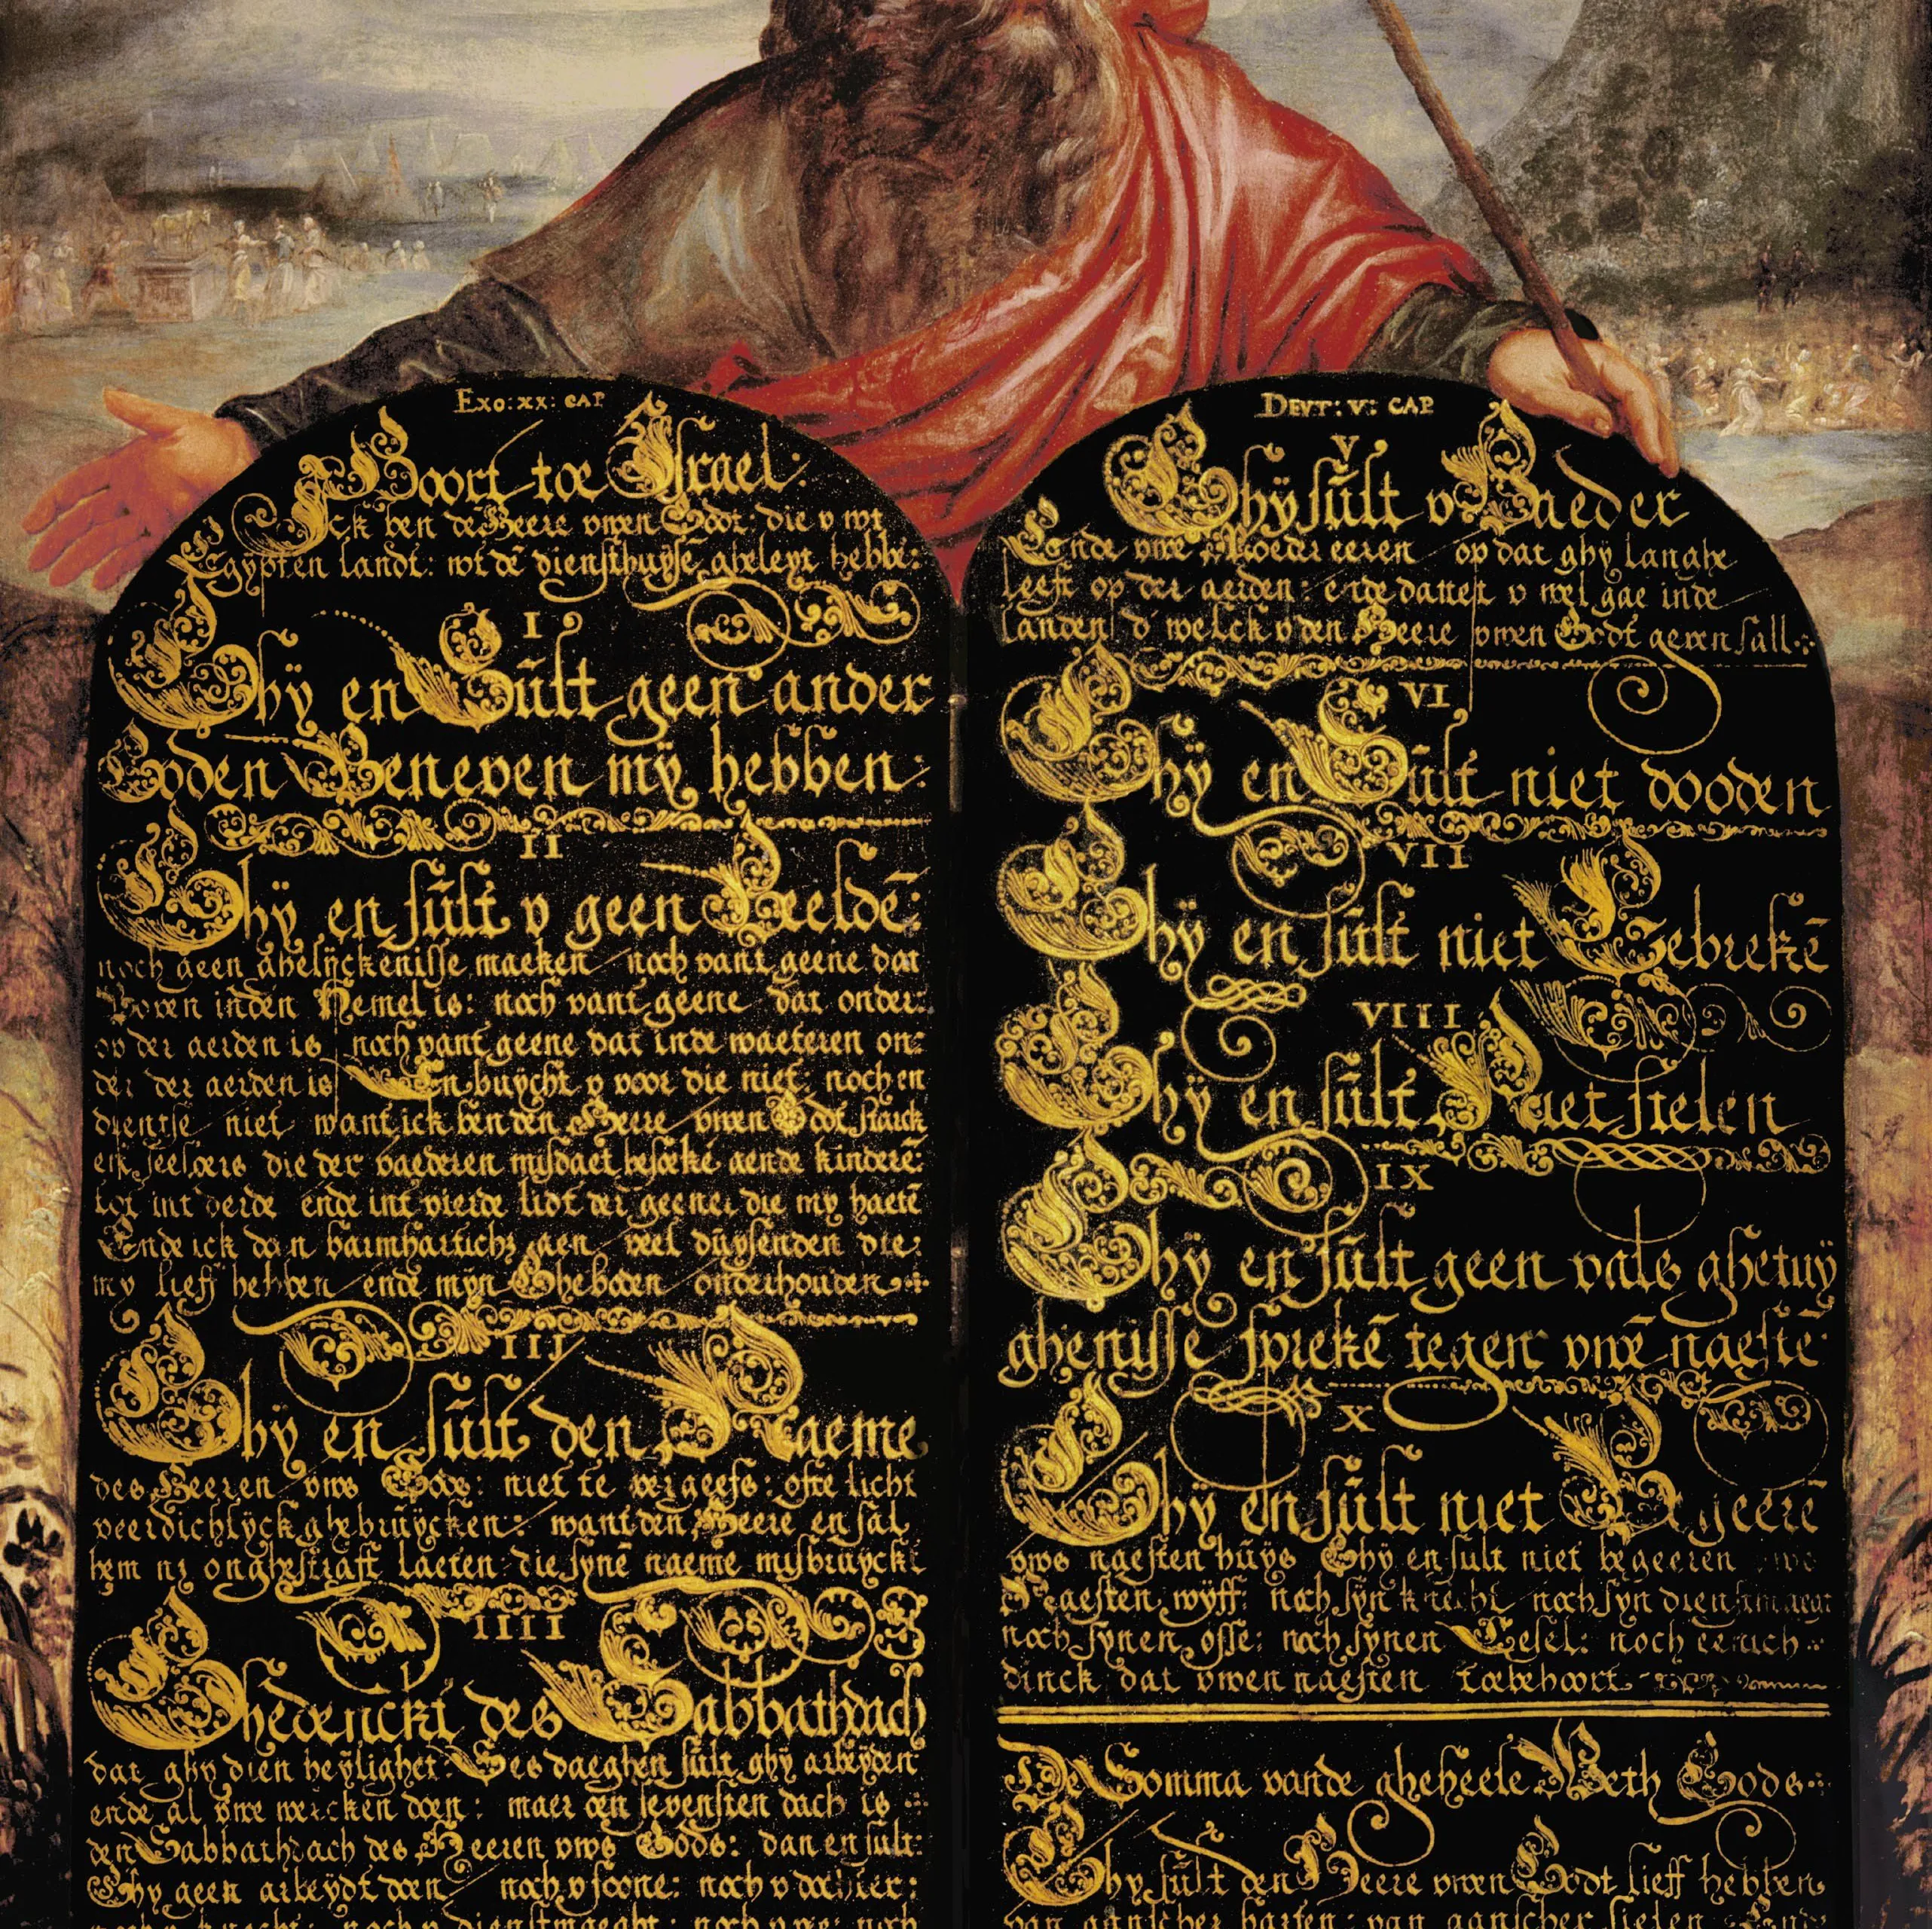 EXO: XX: CAP
Hoort toe Israel:
Ick ben de Heere uwen Godt: die u wt
Egypten landt: wt dē diensthuysē geleyt hebbe:
I
Ghÿ en Sult geen ander
Goden Beneven mÿ hebben:
II
Ghÿ en sult v geen Beeldē:
noch geen ghelijckenisse maeken noch vant geene dat
Boven inden Hemel is: noch vant geene dat onder:
op der aerden is noch vant geene dat inde waeteren on:
der der aerden is En buÿcht v voor die niet, noch en
dientse niet want ick ben den Heere vwen Godt starck
en die der vaederen misdaet besoekē aende kinderē
tot int derde ende int vierde lidt der geener die my haetē
Ende ick doen barmhartich; aen veel duÿsenden die:
my lieff hebben ende mÿn Ghebooden onderhouden:
III
Ghÿ en sult den Naeme
des Heeren vws Gods: niet te vergeefs: ofte licht
veerdichlÿck ghebruÿcken: want den Heere en sal
hem ni onghestrafft laeten die synē naeme misbruyckt
IIII
Ghedenckt des Sabbathdach
dat ghy dien heÿlighet: Ses daeghen sult ghÿ arbeyden
ende al vwe wercken doen: maer den sevensten dach is
den Sabbathdach des Heeren vws Gods: dan en sult:
Ghy geen arbeydt doen noch v soone: noch v dochter:
noch v knecht: noch v dienstmaeght: noch v vee: noch
DEVT: V: CAP
V
Ghÿ sult v Vaeder
Ende vwe Moeder eeren op dat ghÿ langhe
Leeft op der aerden: ende datter v wel gae inde
Landen d welck v den Heere vwen Godt geven sall:
VI
Ghÿ en Sult niet dooden
VII
Ghÿ en sult niet Eebrekē
VIII
Ghÿ en sult Niet stelen
IX
Ghÿ en sult geen vals ghetuÿ
ghenisse sprekē tegen vwē naestē
X
Ghÿ en sult niet Begeerē
vws naesten huÿs Ghÿ en sult niet begeeren vws
Naesten wÿff: noch sÿn knecht noch sÿn dienstmaegt
noch synen osse: noch synen Eesel: noch eenich
dinck dat vwen naesten toebehoort
De Somma vande gheheele Weth Gods
Ghy sult den Heere vwen Godt lieff hebben
van gantscher harten: van gantscher sielen: Ende